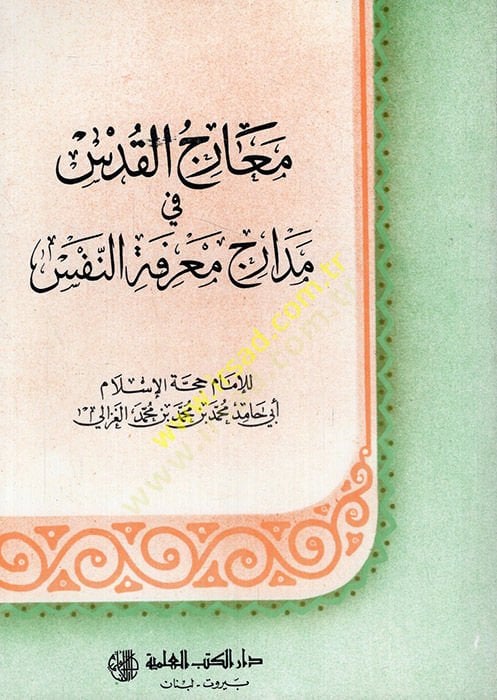 مَعَارِجُ القُدْسِ
في
مَدَارِجِ مَعْرِفَةِ النَّفْسِ
للإمَام حجة الإسلام
أبي حَامِد مُحمَّد بن مُحمَّد بن مُحمَّد الغزالي
www.irsad.com.tr
www.irsad.com.tr
دار الكتب العلمية
بيروت - لبنان